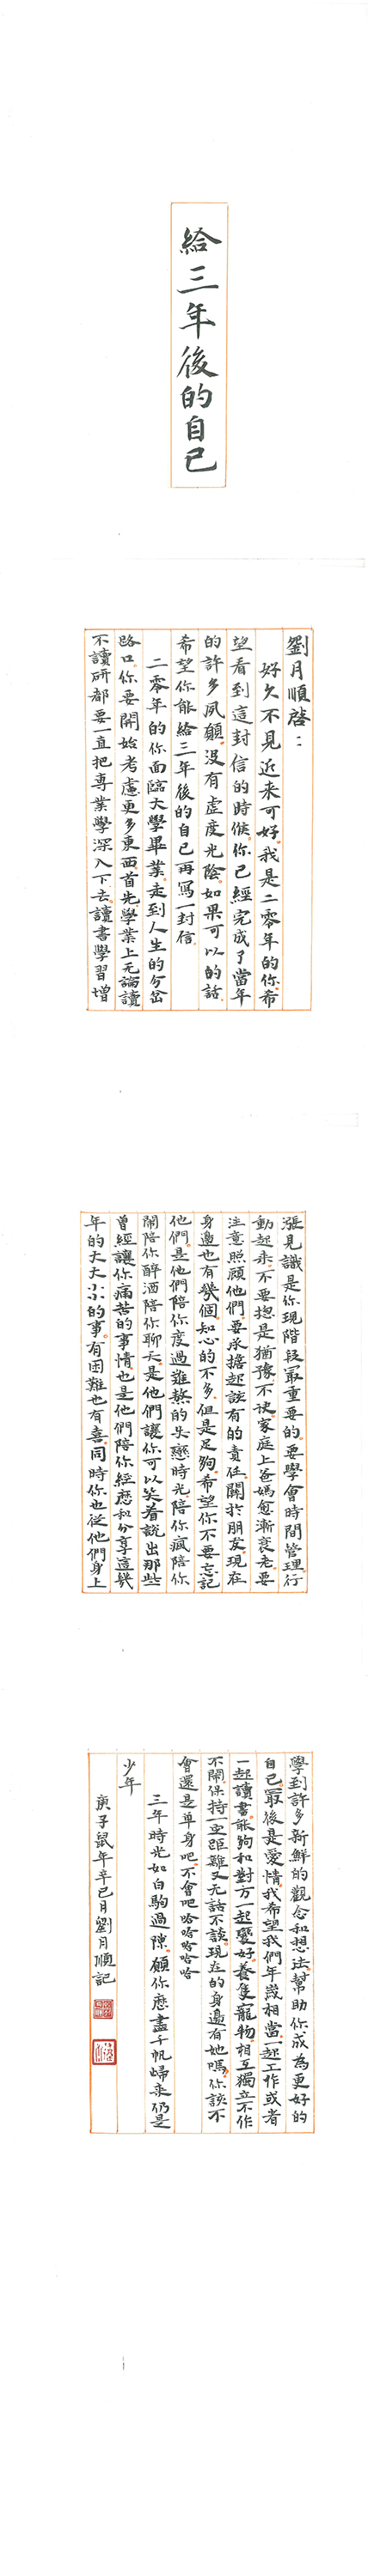 給三年後的自己
劉月順啓：
好久不見近来可好。我是二零年的你。希
望看到這封信的時候。你已經完成了當年
的許多夙願。没有虚度光陰。如果可以的話。
希望你能給三年後的自己再寫一封信。
二零年的你面臨大學畢業。走到人生的分岔
路口。你要開始考慮更多東西。首先。學業上无論讀
不讀研都要一直把専業學深入下去。讀書學習增
漲見識是你現階段最重要的。要學會時間管理。行
動起来。不要揔是猶豫不决。家庭上爸媽愈漸衰老。要
注意照顧他們。要承擔起該有的責任。關於朋友。現在
身邊也有幾個。知心的不多。但是足夠。希望你不要忘記
他們。是他們陪你度過難熬的失戀時光。陪你瘋陪你
鬧陪你醉酒陪你聊天。是他們讓你可以笑着說出那些
曾經讓你痛苦的事情。也是他們陪你經歷和分享這幾
年的大大小小的事。有困難也有喜。同時你也從他們身上
學到許多新鮮的觀念和想法。幫助你成為更好的
自己。最後是愛情。我希望我們年歲相當。一起工作或者
一起讀書。能夠和對方一起變好。養隻寵物。相互獨立。不作
不鬧。保持一定距離又无話不談。現在的身邊有她嗎。你該不
會還是單身吧。不會吧哈哈哈哈哈
三年時光如白駒過隙。願你歷盡千帆歸来仍是
少年
庚子鼠年辛巳月劉月順記